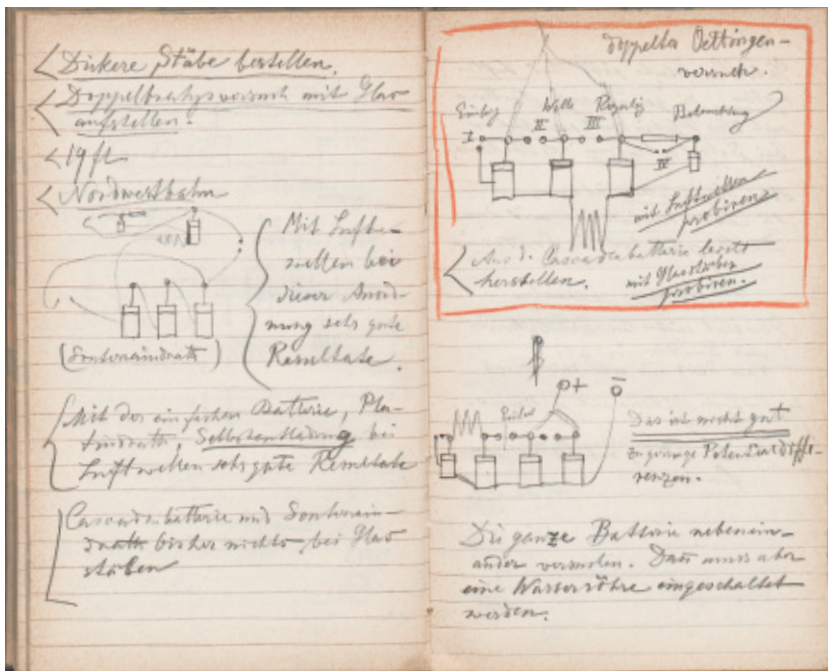 Dickere Stäbe bestellen.
Doppelbrechgsversuch mit Glas
aufstellen.
19 ft
Nordwestbahn
Mit Luft-
wellen bei
dieser Anord-
nung sehr gute
Resultate.
Mit der einfachen Batterie, Pla-
tindrath, Selbstentladung bei
Luftwellen sehr gute Resultate
Cascadenbatterie und
drath bisher nichts bei Glas
stäben
doppelter Oettingen-
versuch.
Welle
Beleuchtung
I II III IV
mit Luftwellen
probiren.
Aus d. Cascadenbatterie leicht
herstellen.
mit Glasstäben
probiren.
+ -
Das ist nicht gut
zu geringe Potentialdiffe-
renzen.
Die ganze Batterie nebenein-
ander
Dann muss aber
eine Wasserröhre eingeschaltet
werden.